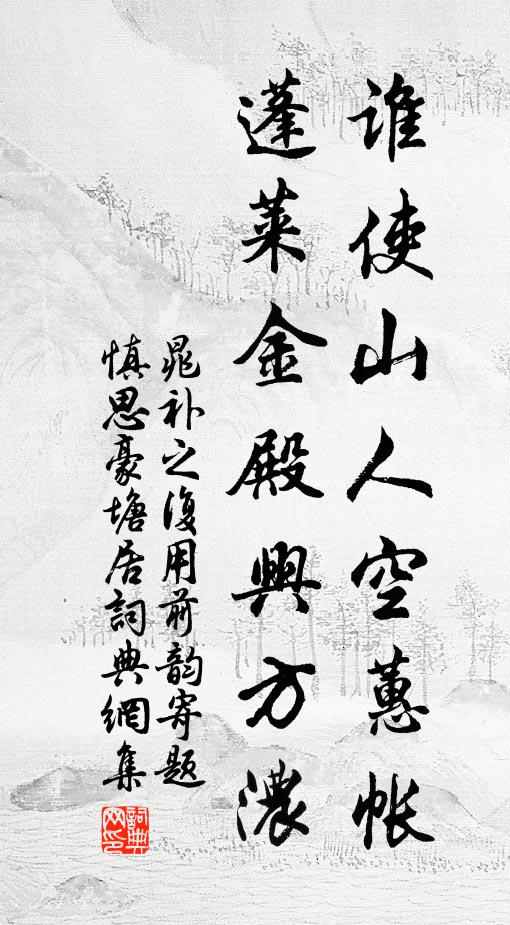 谁使山人空蕙帐
蓬莱金殿興方濃
晁补之復用前韵寄题
慎思豪塘居詞典網集
詞典网印